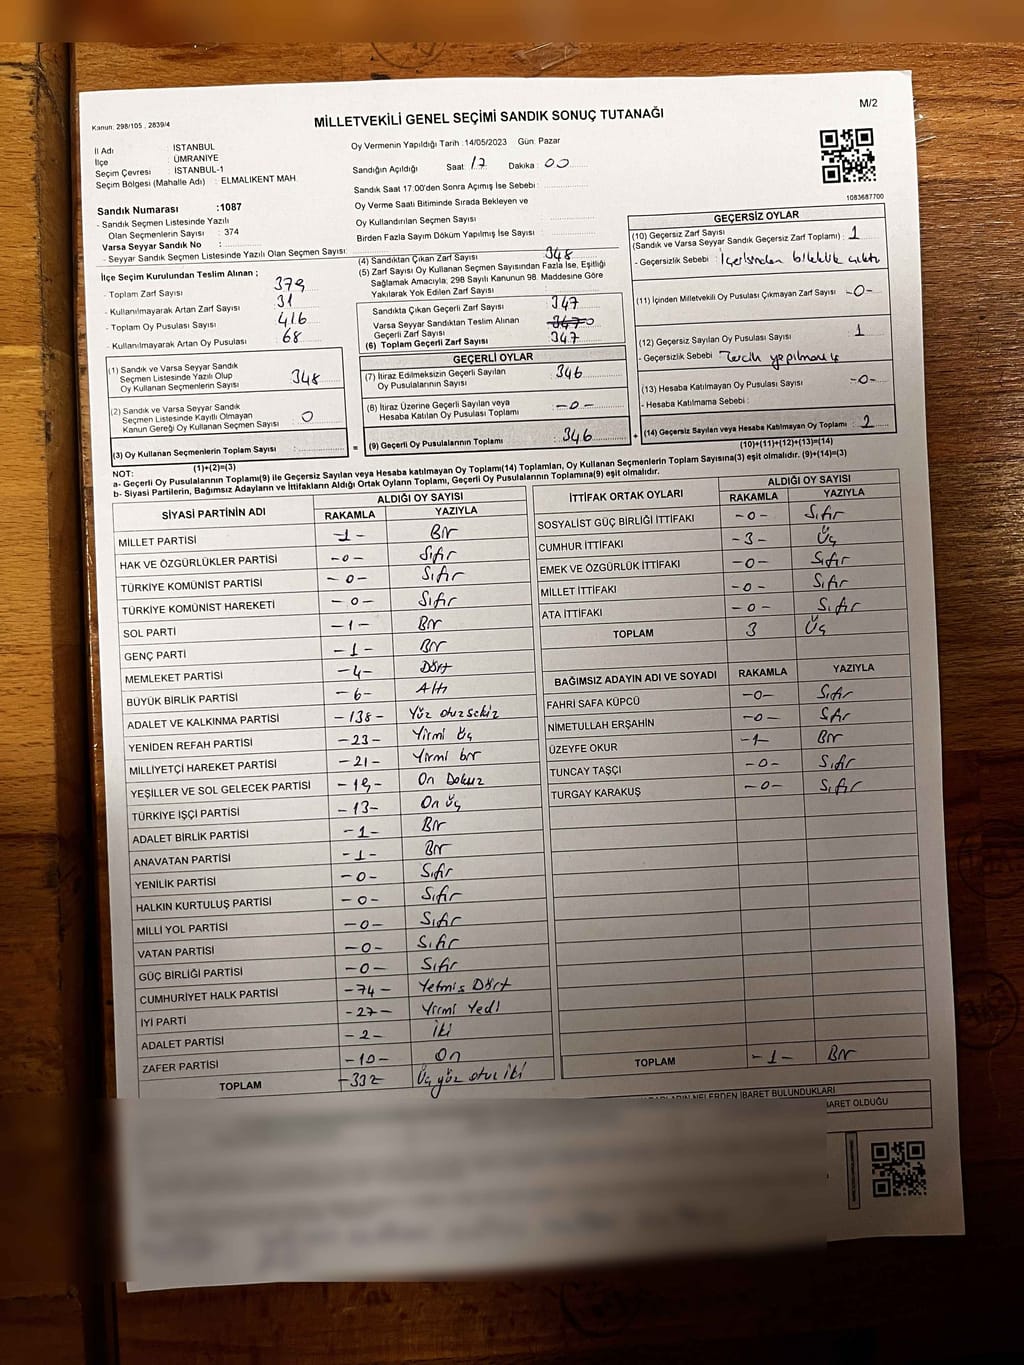 M/2
Kanun: 298/105 , 2839/4
MİLLETVEKİLİ GENEL SEÇİMİ SANDIK SONUÇ TUTANAĞI
İl Adı : İSTANBUL
İlçe : ÜMRANİYE
Seçim Çevresi : İSTANBUL-1
Seçim Bölgesi (Mahalle Adı) : ELMALIKENT MAH.
Oy Vermenin Yapıldığı Tarih :14/05/2023 Gün: Pazar
Sandığın Açıldığı Saat : 17 Dakika : 00
Sandık Saat 17:00'den Sonra Açımış İse Sebebi :
Oy Verme Saati Bitiminde Sırada Bekleyen ve
Oy Kullandırılan Seçmen Sayısı :
Birden Fazla Sayım Döküm Yapılmış İse Sayısı :
1083687700
Sandık Numarası :1087
- Sandık Seçmen Listesinde Yazılı
Olan Seçmenlerin Sayısı : 374
Varsa Seyyar Sandık No :
- Seyyar Sandık Seçmen Listesinde Yazılı Olan Seçmen Sayısı:
İlçe Seçim Kurulundan Teslim Alınan ;
- Toplam Zarf Sayısı : 379
- Kullanılmayarak Artan Zarf Sayısı : 31
- Toplam Oy Pusulası Sayısı : 416
- Kullanılmayarak Artan Oy Pusulası : 68
(1) Sandık ve Varsa Seyyar Sandık
Seçmen Listesinde Yazılı Olup
Oy Kullanan Seçmenlerin Sayısı : 348
(2) Sandık ve Varsa Seyyar Sandık
Seçmen Listesinde Kayıtlı Olmayan
Kanun Gereği Oy Kullanan Seçmen Sayısı : 0
(3) Oy Kullanan Seçmenlerin Toplam Sayısı :
(1)+(2)=(3)
(4) Sandıktan Çıkan Zarf Sayısı : 348
(5) Zarf Sayısı Oy Kullanan Seçmen Sayısından Fazla İse, Eşitliği
Sağlamak Amacıyla; 298 Sayılı Kanunun 98. Maddesine Göre
Yakılarak Yok Edilen Zarf Sayısı :
Sandıkta Çıkan Geçerli Zarf Sayısı : 347
Varsa Seyyar Sandıktan Teslim Alınan
Geçerli Zarf Sayısı : 347 0
(6) Toplam Geçerli Zarf Sayısı : 347
GEÇERLİ OYLAR
(7) İtiraz Edilmeksizin Geçerli Sayılan
Oy Pusulalarının Sayısı : 346
(8) İtiraz Üzerine Geçerli Sayılan veya
Hesaba Katılan Oy Pusulası Toplamı : -0-
= (9) Geçerli Oy Pusulalarının Toplamı : 346 +
GEÇERSİZ OYLAR
(10) Geçersiz Zarf Sayısı
(Sandık ve Varsa Seyyar Sandık Geçersiz Zarf Toplamı) : 1
- Geçersizlik Sebebi : İçerisinden bileklik çıktı
(11) İçinden Milletvekili Oy Pusulası Çıkmayan Zarf Sayısı : -0-
(12) Geçersiz Sayılan Oy Pusulası Sayısı : 1
- Geçersizlik Sebebi : Tercih yapılmamış
(13) Hesaba Katılmayan Oy Pusulası Sayısı : -0-
- Hesaba Katılmama Sebebi :
(14) Geçersiz Sayılan veya Hesaba Katılmayan Oy Toplamı : 2
(10)+(11)+(12)+(13)=(14)
NOT:
a- Geçerli Oy Pusulalarının Toplamı(9) ile Geçersiz Sayılan veya Hesaba katılmayan Oy Toplamı(14) Toplamları, Oy Kullanan Seçmenlerin Toplam Sayısına(3) eşit olmalıdır. (9)+(14)=(3)
b- Siyasi Partilerin, Bağımsız Adayların ve İttifakların Aldığı Ortak Oyların Toplamı, Geçerli Oy Pusulalarının Toplamına(9) eşit olmalıdır.
SİYASİ PARTİNİN ADI ALDIĞI OY SAYISI
RAKAMLA YAZIYLA
MİLLET PARTİSİ -1- Bir
HAK VE ÖZGÜRLÜKLER PARTİSİ -0- Sıfır
TÜRKİYE KOMÜNİST PARTİSİ -0- Sıfır
TÜRKİYE KOMÜNİST HAREKETİ -0- Sıfır
SOL PARTİ -1- Bir
GENÇ PARTİ -1- Bir
MEMLEKET PARTİSİ -4- Dört
BÜYÜK BİRLİK PARTİSİ -6- Altı
ADALET VE KALKINMA PARTİSİ -138- Yüz otuzsekiz
YENİDEN REFAH PARTİSİ -23- Yirmi Üç
MİLLİYETÇİ HAREKET PARTİSİ -21- Yirmi bir
YEŞİLLER VE SOL GELECEK PARTİSİ -19- On Dokuz
TÜRKİYE İŞÇİ PARTİSİ -13- On Üç
ADALET BİRLİK PARTİSİ -1- Bir
ANAVATAN PARTİSİ -1- Bir
YENİLİK PARTİSİ -0- Sıfır
HALKIN KURTULUŞ PARTİSİ -0- Sıfır
MİLLİ YOL PARTİSİ -0- Sıfır
VATAN PARTİSİ -0- Sıfır
GÜÇ BİRLİĞİ PARTİSİ -0- Sıfır
CUMHURİYET HALK PARTİSİ -74- Yetmiş Dört
İYİ PARTİ -27- Yirmi Yedi
ADALET PARTİSİ -2- İki
ZAFER PARTİSİ -10- On
TOPLAM -332 Üç yüz otuz iki
İTTİFAK ORTAK OYLARI ALDIĞI OY SAYISI
RAKAMLA YAZIYLA
SOSYALİST GÜÇ BİRLİĞİ İTTİFAKI -0- Sıfır
CUMHUR İTTİFAKI -3- Üç
EMEK VE ÖZGÜRLÜK İTTİFAKI -0- Sıfır
MİLLET İTTİFAKI -0- Sıfır
ATA İTTİFAKI -0- Sıfır
TOPLAM 3 Üç
BAĞIMSIZ ADAYIN ADI VE SOYADI RAKAMLA YAZIYLA
FAHRİ SAFA KÜPCÜ -0- Sıfır
NİMETULLAH ERŞAHİN -0- Sıfır
ÜZEYFE OKUR -1- Bir
TUNCAY TAŞÇI -0- Sıfır
TURGAY KARAKUŞ -0- Sıfır
TOPLAM -1- Bir
NELERDEN İBARET BULUNDUKLARI
OLDUĞU